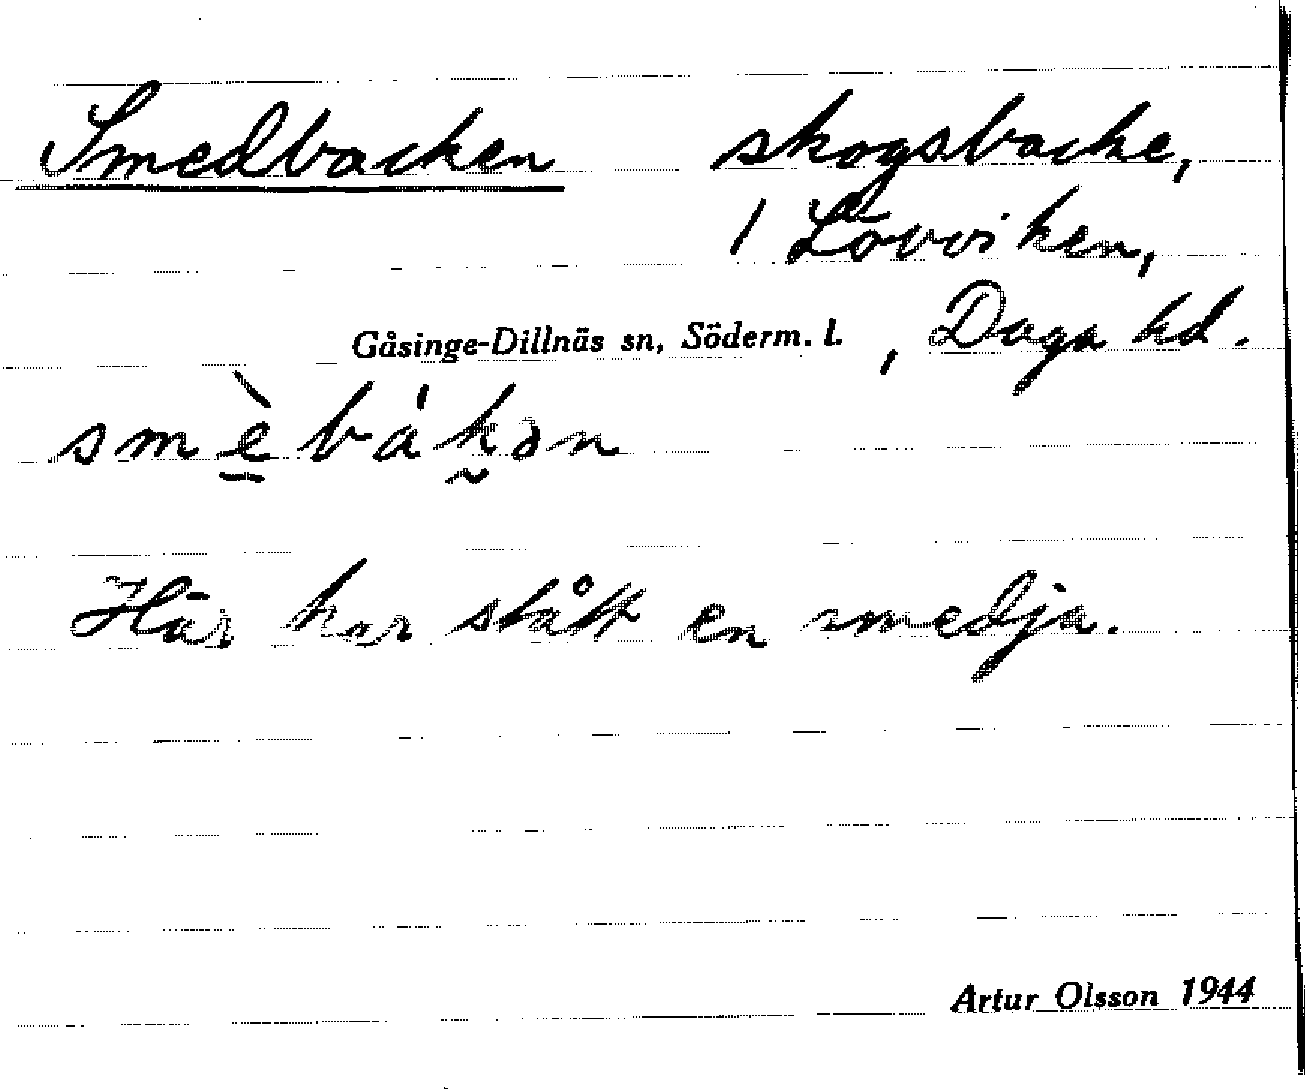 Smedbacken skogsbacke,
1 Lövviken,
Gåsinge-Dillnäs sn, Söderm. l. , Daga hd.
smèbákən
Här har stått en smedja.
Artur Olsson 1944